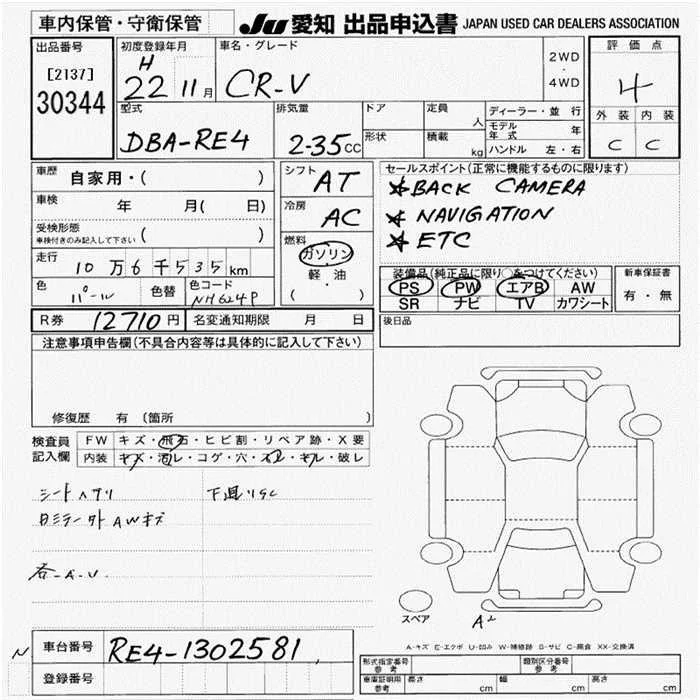 車内保管・守衛保管
JU 愛知 出品申込書 JAPAN USED CAR DEALERS ASSOCIATION
出品番号
[2137]
30344
初度登録年月
H
22 11月
車名・グレード
CR-V
2WD
・
4WD
評価点
4
外装 内装
C C
型式
DBA-RE4
排気量
2-35cc
ドア
形状
定員 人
積載 kg
ディーラー・並行
モデル年式 年
ハンドル 左・右
車歴 自家用・( )
車検 年 月( 日)
受検形態
車検付きのみ記入して下さい ( )
走行 10万6千535km
色 パール 色替 色コード NH624P
シフト AT
冷房 AC
燃料
ガソリン
軽・油
( ・ )
セールスポイント(正常に機能するものに限ります)
★BACK CAMERA
★NAVIGATION
★ETC
装備品(純正品に限り○をつけてください)
PS PW エアB AW
SR ナビ TV カワシート
新車保証書
有・無
R券 12710円 名変通知期限 月 日
後日品
注意事項申告欄(不具合内容等は具体的に記入して下さい)
修復歴 有 (箇所 )
検査員
記入欄
FW キズ・飛石・ヒビ割・リペア跡・X要
内装 キズ・汚レ・コゲ・穴・スレ・キレ・破レ
シートヘタリ
AWキズ
各-A.U
スペア
A2
A-キズ E-エクボ U-凹み W-補修跡 S-サビ C-腐食 XX-交換済
N
車台番号 RE4-1302581
登録番号
形式指定番号
参考
類別区分番号
参考
車庫証明用
参考
長さ cm 幅 cm 高さ cm